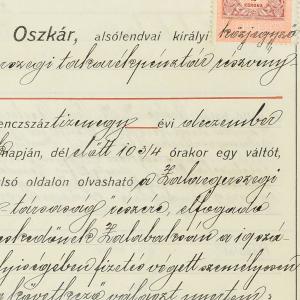 KORONA
Oszkár, alsólendvai királyi közjegyző
szegi takarékpénztár részvény
enczszáz tizenegy évi deczember
napján, dél előtt 10 3/4 órakor egy váltót,
lsó oldalon olvasható a Zalaegerszegi
társaság" részére, elfogada
Zalabaksán a igazá
lyiségében fizetés végett személyesen
következő választ nyertem: